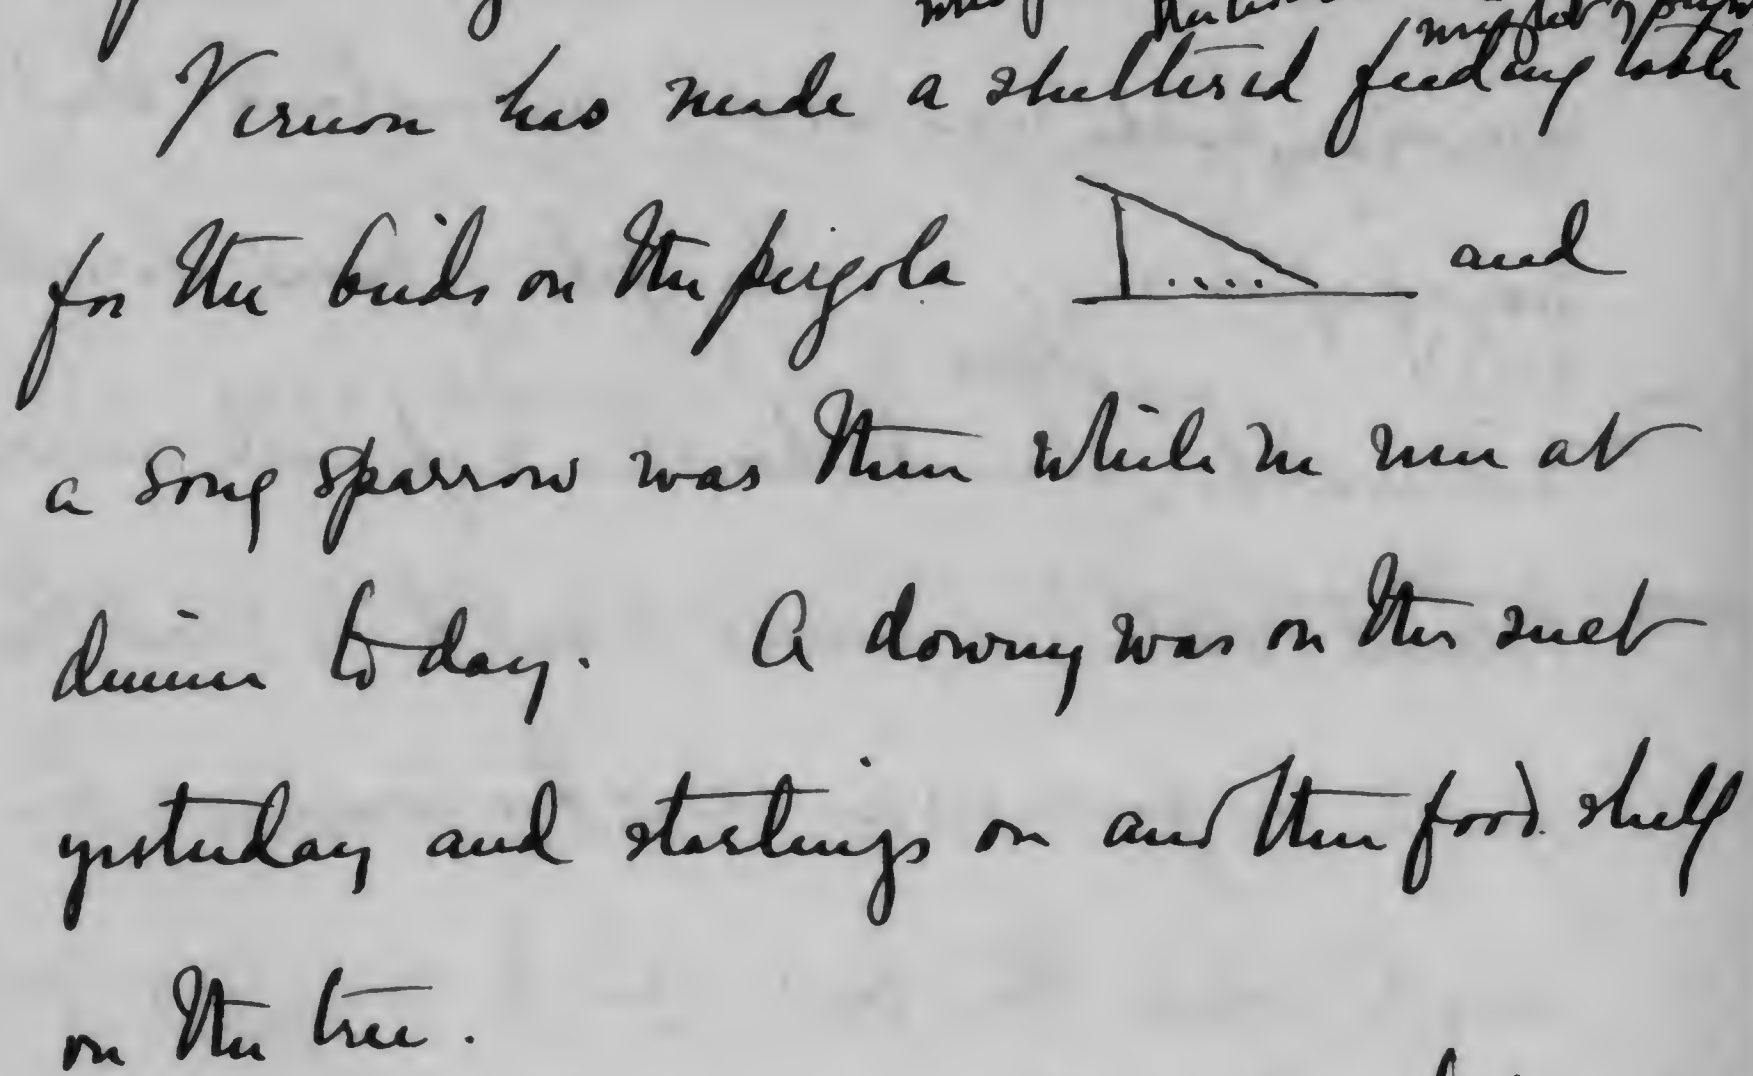 Vernon has made a sheltered feeding table
for the birds on the pergola and
a song sparrow was there while we were at
dinner today. A downy was on the suet
yesterday and starlings on and their food shelf
on the tree.